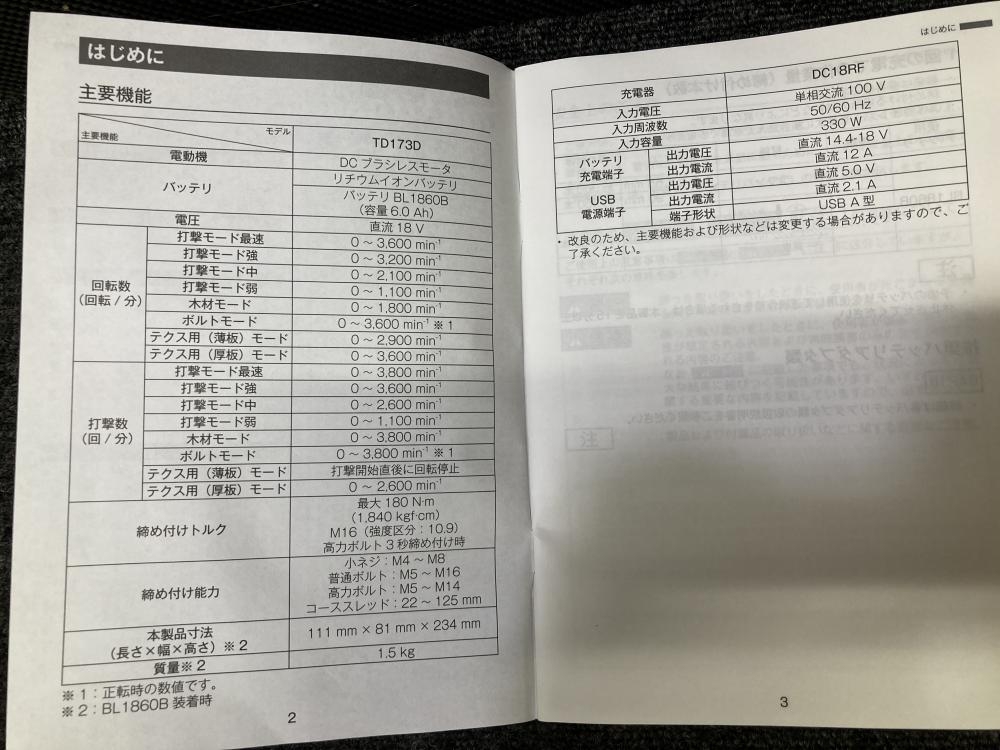 はじめに
主要機能
モデル
主要機能
TD173D
電動機 DC ブラシレスモータ
バッテリ リチウムイオンバッテリ
バッテリ BL1860B
(容量 6.0 Ah)
電圧 直流 18 V
回転数
(回転 / 分)
打撃モード最速 0 ~ 3,600 min⁻¹
打撃モード強 0 ~ 3,200 min⁻¹
打撃モード中 0 ~ 2,100 min⁻¹
打撃モード弱 0 ~ 1,100 min⁻¹
木材モード 0 ~ 1,800 min⁻¹
ボルトモード 0 ~ 3,600 min⁻¹ ※ 1
テクス用(薄板)モード 0 ~ 2,900 min⁻¹
テクス用(厚板)モード 0 ~ 3,600 min⁻¹
打撃数
(回 / 分)
打撃モード最速 0 ~ 3,800 min⁻¹
打撃モード強 0 ~ 3,600 min⁻¹
打撃モード中 0 ~ 2,600 min⁻¹
打撃モード弱 0 ~ 1,100 min⁻¹
木材モード 0 ~ 3,800 min⁻¹
ボルトモード 0 ~ 3,800 min⁻¹ ※ 1
テクス用(薄板)モード 打撃開始直後に回転停止
テクス用(厚板)モード 0 ~ 2,600 min⁻¹
締め付けトルク
最大 180 N·m
(1,840 kgf·cm)
M16(強度区分:10.9)
高力ボルト 3 秒締め付け時
締め付け能力
小ネジ:M4 ~ M8
普通ボルト:M5 ~ M16
高力ボルト:M5 ~ M14
コーススレッド:22 ~ 125 mm
本製品寸法
(長さ×幅×高さ)※ 2
111 mm × 81 mm × 234 mm
質量※ 2 1.5 kg
※ 1:正転時の数値です。
※ 2:BL1860B 装着時
2
はじめに
充電器 DC18RF
入力電圧 単相交流 100 V
入力周波数 50/60 Hz
入力容量 330 W
バッテリ
充電端子
出力電圧 直流 14.4-18 V
出力電流 直流 12 A
USB
電源端子
出力電圧 直流 5.0 V
出力電流 直流 2.1 A
端子形状 USB A 型
・ 改良のため、主要機能および形状などは変更する場合がありますので、ご
了承ください。
3